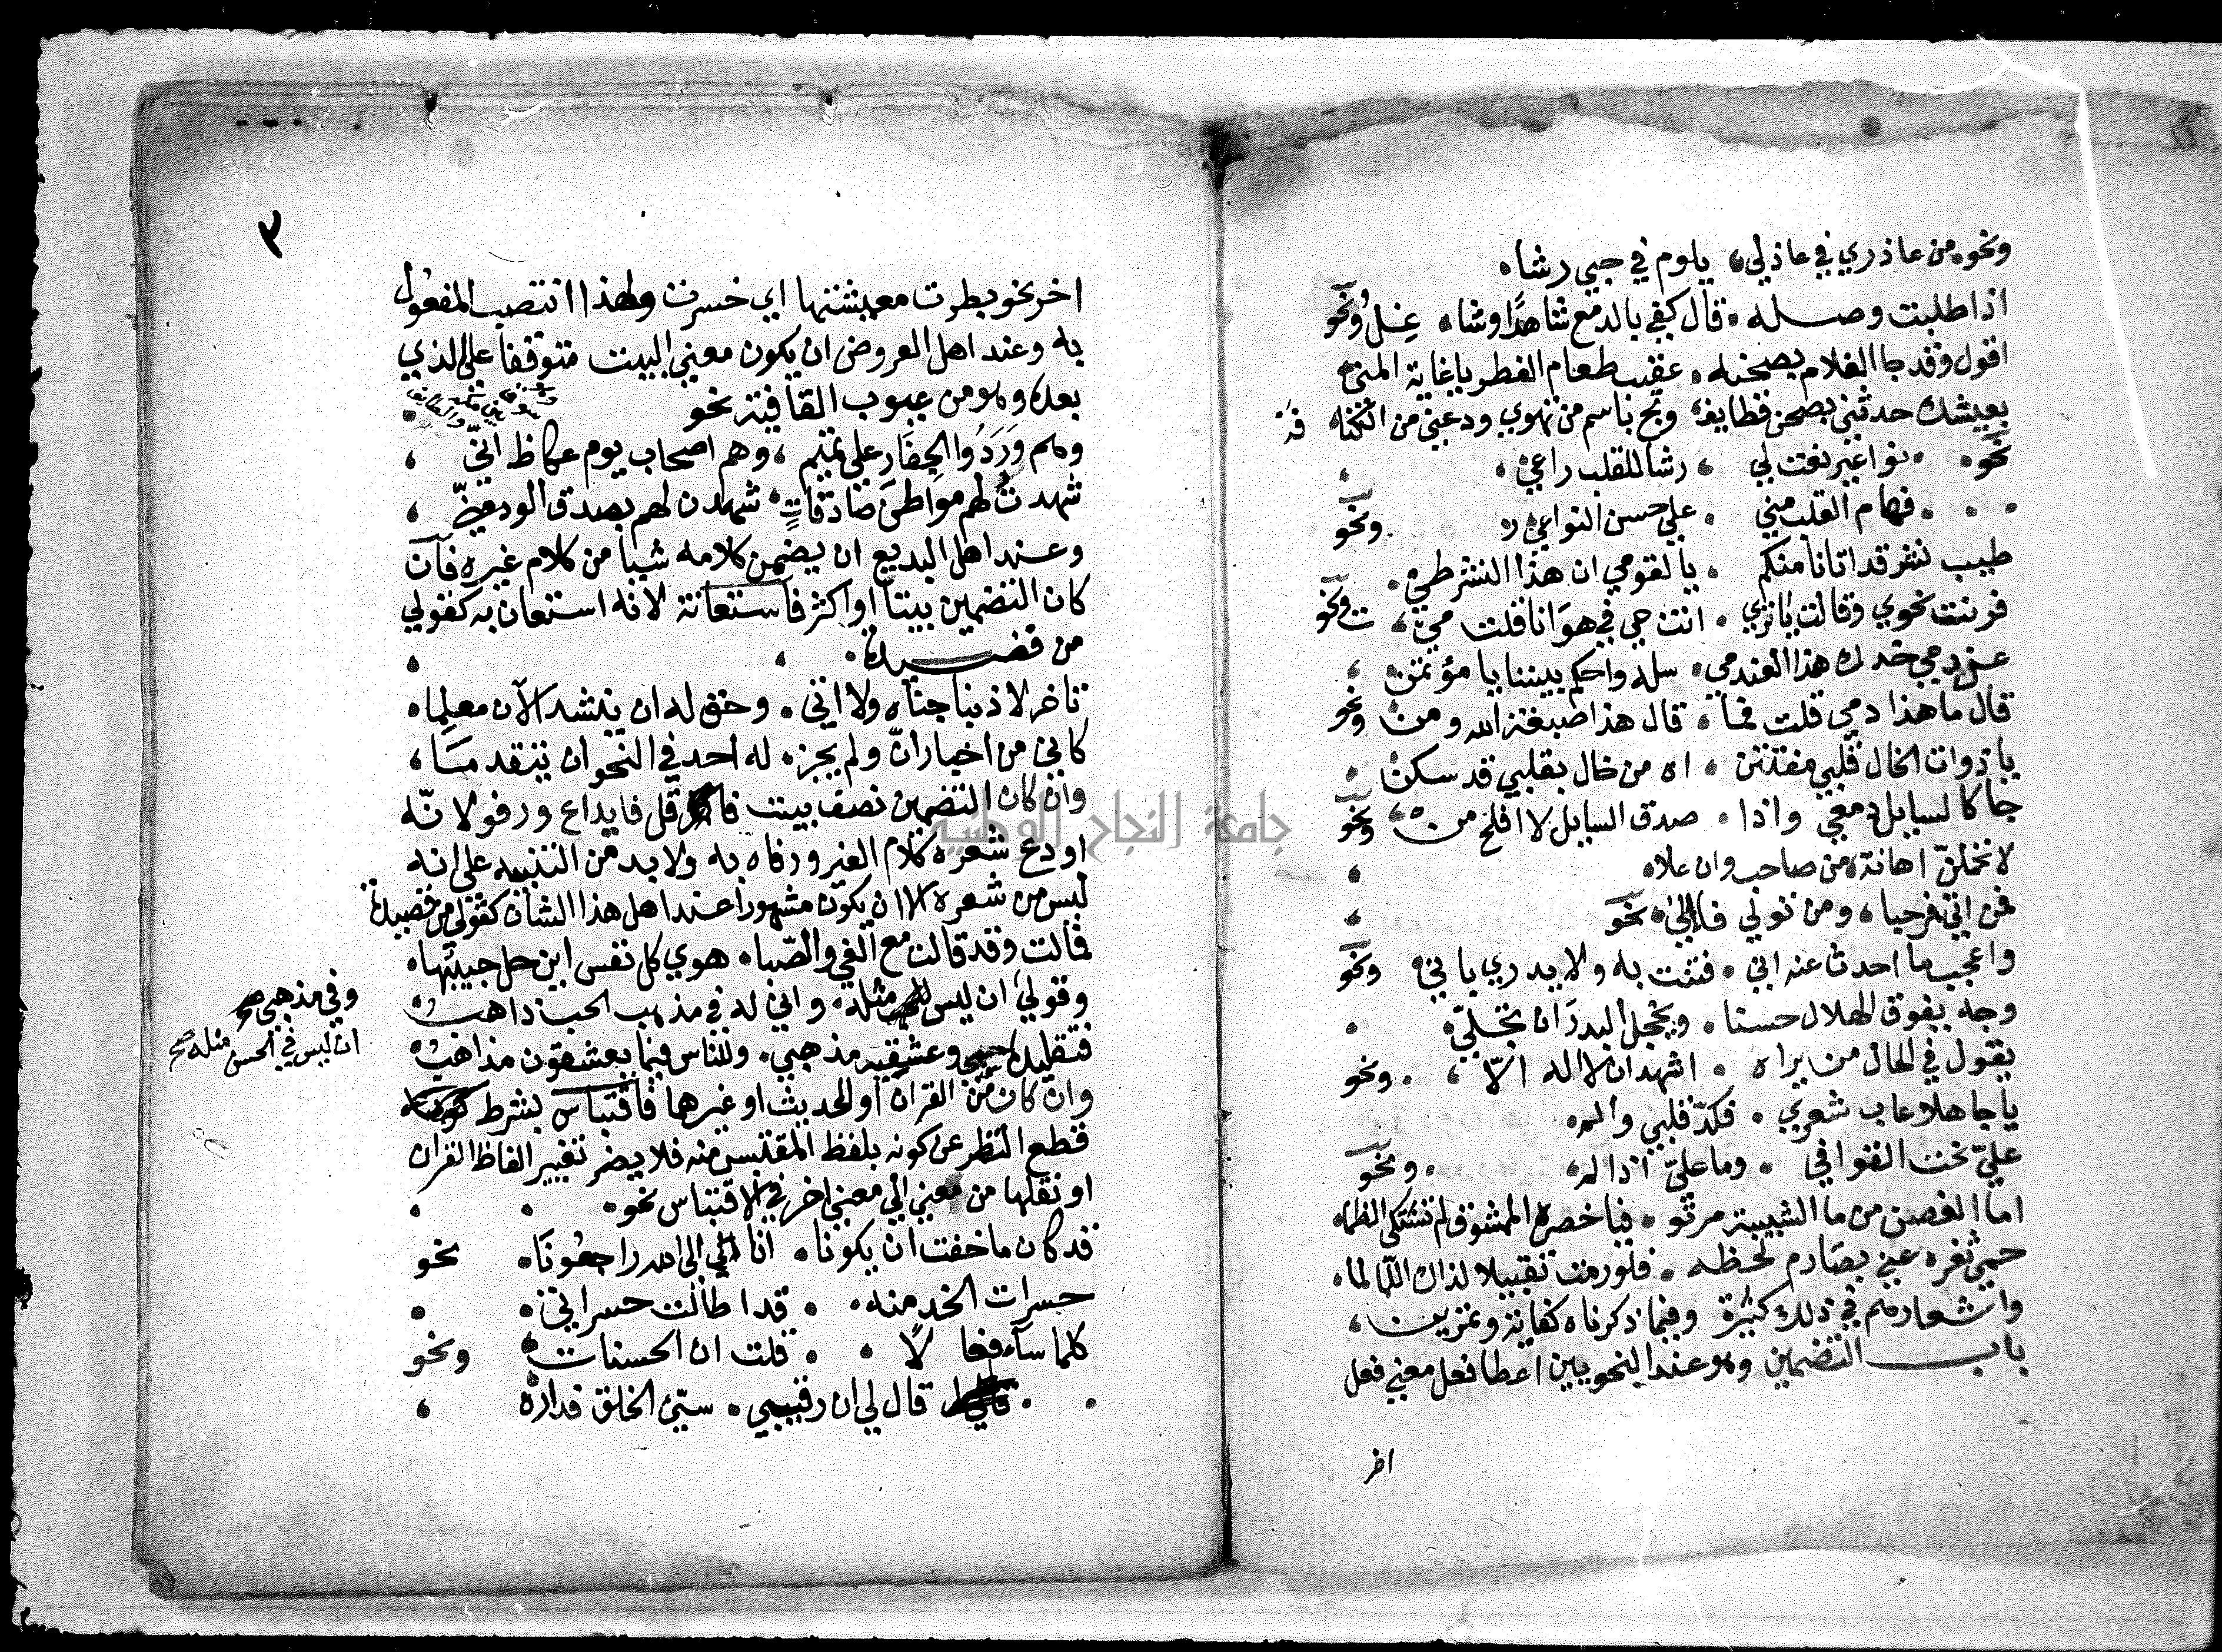 ونحو من عاذري في عاذلي يلوم في حبي رشاه
اذا طلبت وصله قال كفى بالدمع شاهدا وشاه ونحو
اقول وقد جا الغلام بصحنه عقيب طعام الفطر يا غاية المنى
بعيشك حدثني بصحن قطايف وبح باسم من تهوي ودعني من الكنا
نحو نواعير نعت لي رشا للقلب راعي
فهام القلب مني علي حسن النواعي ونحو
طيب نشر قد اتانا منكم يا لقومي ان هذا النشر طي
فرنت نحوي وقالت يا تري انت حي في هوانا قلت مي ونحو
عن دمي خدك هذا العندمي سله واحكم بيننا يا مؤتمن
قال ما هذا دمي قلت فما قال هذا صبغة الله ومن ونحو
يا ذوات الخال قلبي مفتتن اه من خال بقلبي قد سكن
جا كالسايل دمعي واذا صدق السايل لا افلح من ونحو
لا تحملن اهانة من صاحب وان علاه
فمن اتي فمرحبا ومن تولي فالي نحو
واعجب ما احدث عنه اني فتنت به ولا يدري باني ونحو
وجه يفوق الهلال حسنا ويخجل البدر ان تجلي
يقول في الحال من يراه اشهد ان لا اله الا ونحو
يا جاهلا عاب شعري فكد قلبي والم
علي نحت القوافي وما علي اذا لم ونحو
اما الغصن من ما الشبيبة مرتو فيا خصره الممشوق لم تشتكي الظماء
حمي ثغره عني بصارم لحظه فلو رمت تقبيلا لذاك اللما لما
واشعارهم في ذلك كثيرة وفيما ذكرناه كفاية وتمرين
باب التضمين وهو عند النحويين اعطا فعل معني فعل
اخر
٣
اخر نحو بطرت معيشتها اي خسرت ولهذا انتصب المفعول
به وعند اهل العروض ان يكون معني البيت متوقفا علي الذي
بعده وهو من عيوب القافية نحو
وهم وردوا الجفار علي تميم وهم اصحاب يوم عكاظ اني
شهدت لهم مواطن صادقات شهدن لهم بصدق الود مني
وعند اهل البديع ان يضمن كلامه شيا من كلام غيره فان
كان التضمين بيتا او اكثر فاستعانة لانه استعان به كقولي
من قصيدة
تاخر لا ذنبا جناه ولا اتي وحق له ان ينشد الآن معلما
كاني من اخبار ان ولم يجز له احد في النحو ان يتقدما
وان كان التضمين نصف بيت فاقل فايداع ورفو لانه
اودع شعره كلام الغير ورفاه به ولا بد من التنبيه علي انه
ليس من شعره الا ان يكون مشهورا عند اهل هذا الشان كقولي من قصيدة
فمالت وقد قالت مع الغي والصباه هوي كل نفس اين حل حبيبها
وقولي ان ليس مثله واني له في مذهب الحب ذاهب
وفي مذهبي
ان ليس في الحسن مثله صح
فتقليد وعشقيه مذهبي وللناس فيما يعشقون مذاهب
وان كان من القران او الحديث او غيرهما فاقتباس بشرط
قطع النظر عن كونه بلفظ المقتبس منه فلا يضر تغيير الفاظ القران
او نقلها من معني الي معني اخر في الاقتباس نحو
قد كان ما خفت ان يكونا انا الي الله راجعونا نحو
حسرات الخد منه قد اطالت حسراتي
كلما ساء فعالا قلت ان الحسنات ونحو
قال لي ان رقيبي سيئ الخلق فداره
جامعة النجاح الوطنية